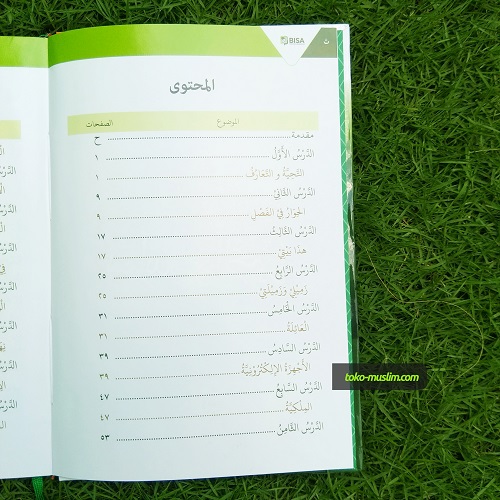 BISA ث
المحتوى
الموضوع الصفحات
مقدمة ح
الدَّرْسُ الأَوَّلُ ١
التَّحِيَّةُ وَ التَّعَارُفُ ١
الدَّرْسُ الثَّانِيْ ٩
الحِوَارُ فِيْ الفَصْلِ ٩
الدَّرْسُ الثَّالِثُ ١٧
هٰذَا بَيْتِيْ ١٧
الدَّرْسُ الرَّابِعُ ٢٥
زَمِيْلِيْ وَزَمِيْلَتِيْ ٢٥
الدَّرْسُ الْخَامِسُ ٣١
العَائِلَةُ ٣١
الدَّرْسُ السَّادِسُ ٣٩
الأَجْهِزَةُ الإِلِكْتُرُوْنِيَّةُ ٣٩
الدَّرْسُ السَّابِعُ ٤٧
المِلْكِيَّةُ ٤٧
الدَّرْسُ الثَّامِنُ ٥٣
toko-muslim.com